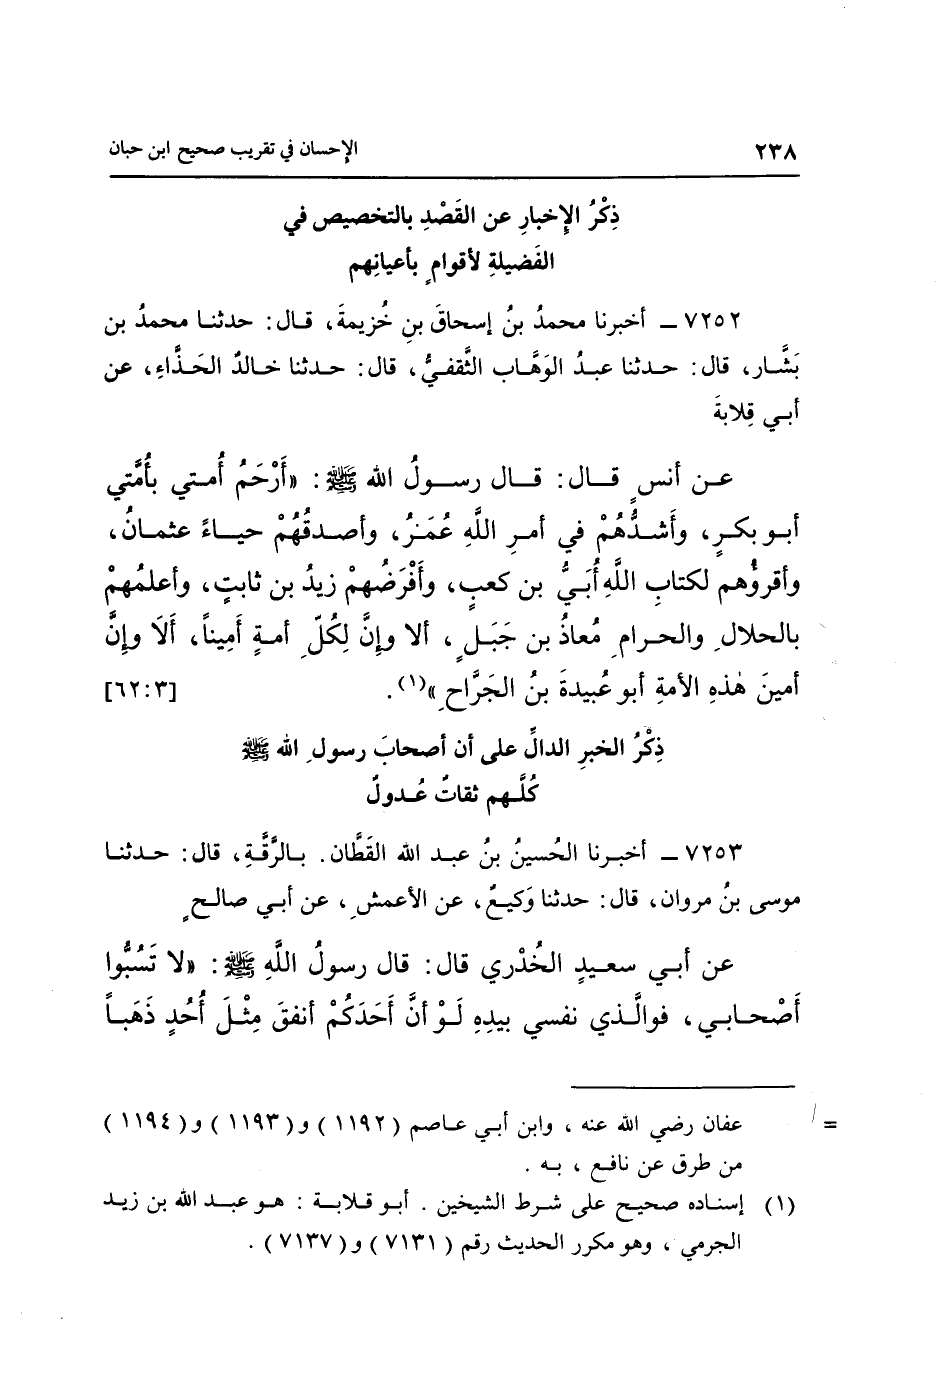 ٢٣٨ الإحسان في تقريب صحيح ابن حبان
ذِكْرُ الإِخبارِ عن القَصْدِ بالتخصيص في
الفَضيلةِ لأقوامٍ بأعيانِهم
٧٢٥٢ ـ أخبرنا محمدُ بنُ إسحاقَ بنِ خُزيمةَ، قال: حدثنا محمدُ بن
بَشَّار، قال: حدثنا عبدُ الوَهَّاب الثَّقفيُّ، قال: حدثنا خالدٌ الحَذَّاءِ، عن
أبي قِلابةَ
عن أنسٍ قال: قال رسولُ الله ﷺ: «أَرْحَمُ أُمتي بأُمَّتي
أبو بكرٍ، وأَشدُّهُمْ في أمرِ اللَّهِ عُمَرُ، وأصدقُهُمْ حياءً عثمانُ،
وأقرؤُهم لكتابِ اللَّهِ أُبَيُّ بن كعبٍ، وأَفْرَضُهمْ زيدُ بن ثابتٍ، وأعلمُهمْ
بالحلالِ والحرامِ مُعاذُ بن جَبَلٍ، ألا وإنَّ لِكُلِّ أمةٍ أَمِيناً، أَلَا وإنَّ
أمينَ هٰذهِ الأمةِ أبو عُبيدةَ بنُ الجَرَّاحِ»(١). [٦٢:٣]
ذِكْرُ الخبرِ الدالِّ على أن أصحابَ رسولِ الله ﷺ
كُلَّهم ثقاتٌ عُدولٌ
٧٢٥٣ ـ أخبرنا الحُسينُ بنُ عبد الله القَطَّان. بالرَّقَّةِ، قال: حدثنا
موسى بنُ مروان، قال: حدثنا وَكيعٌ، عن الأعمشِ، عن أبي صالحٍ
عن أبي سعيدٍ الخُدْري قال: قال رسولُ اللَّهِ ﷺ: «لا تَسُبُّوا
أَصْحابي، فوالَّذي نفسي بيدِهِ لَوْ أنَّ أَحَدَكُمْ أنفقَ مِثْلَ أُحُدٍ ذَهَباً
= عفان رضي الله عنه، وابن أبي عاصم (١١٩٢) و(١١٩٣) و(١١٩٤)
من طرق عن نافع، به.
(١) إسناده صحيح على شرط الشيخين. أبو قلابة: هو عبد الله بن زيد
الجرمي، وهو مكرر الحديث رقم (٧١٣١) و(٧١٣٧).